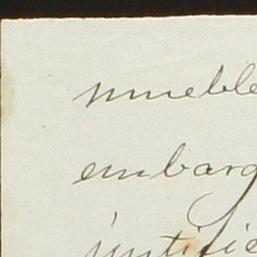 mueble
embarg
justifie